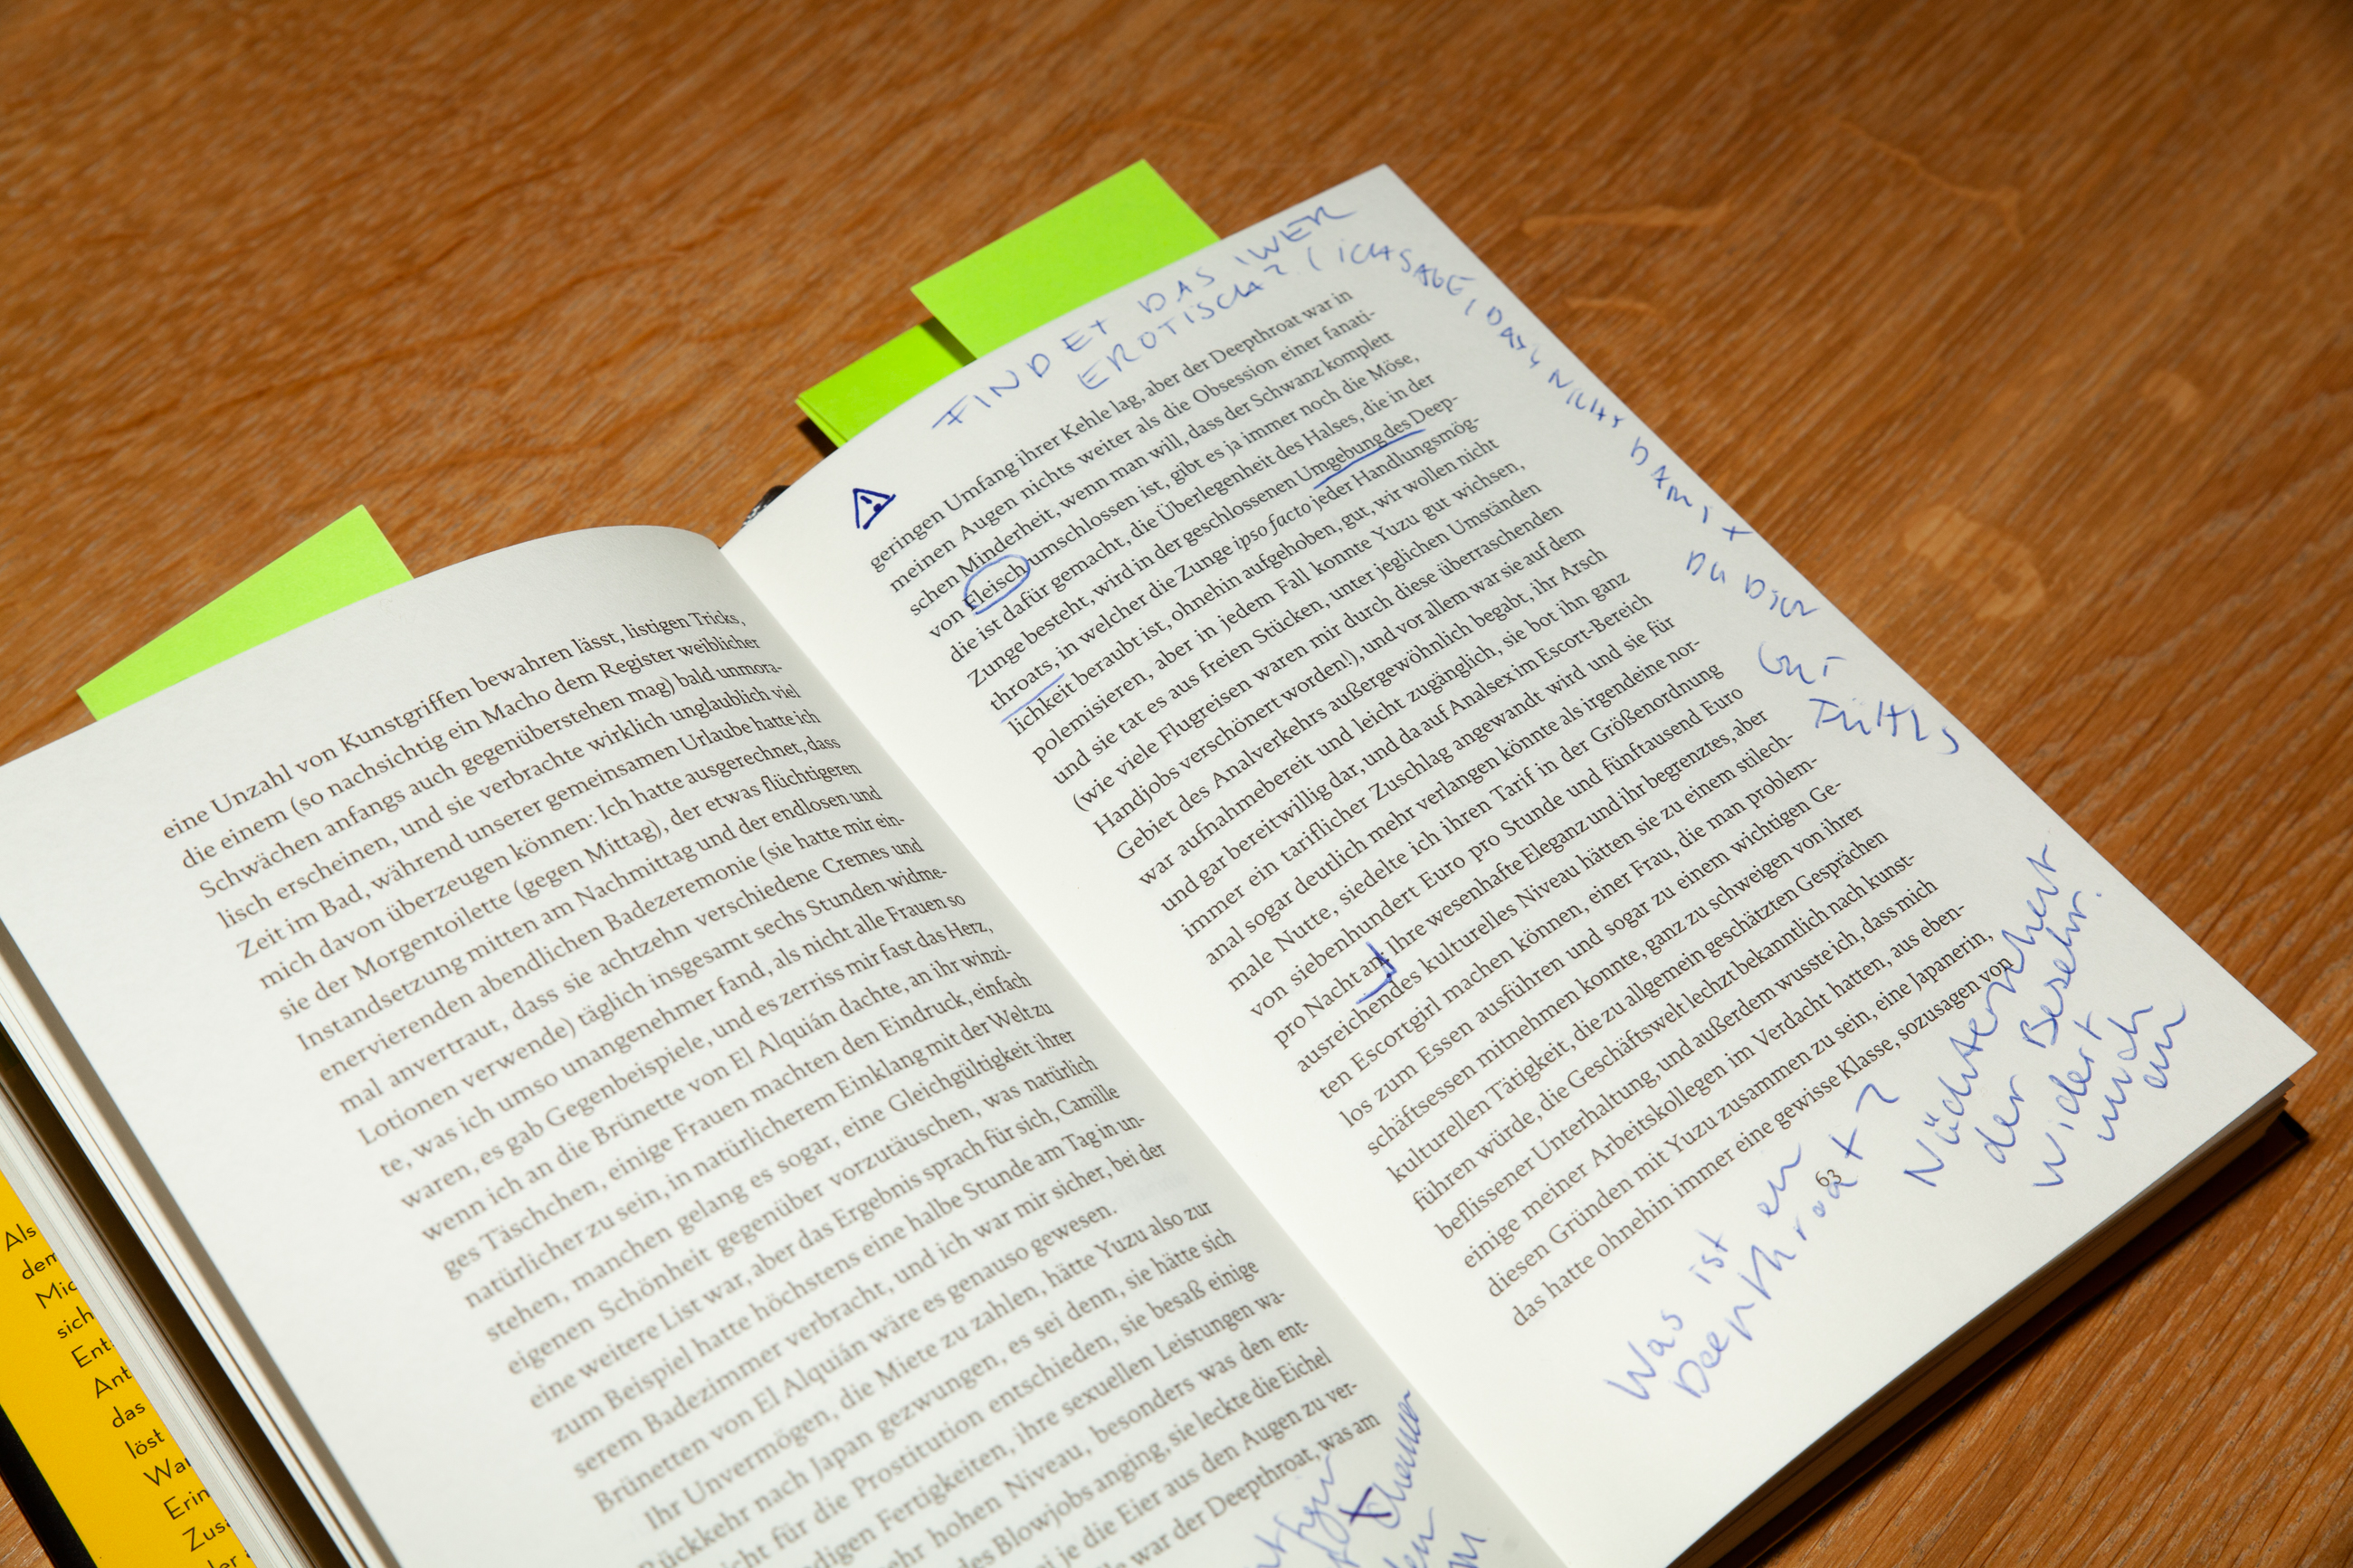 eine Unzahl von Kunstgriffen bewahren lässt, listigen Tricks,
die einem (so nachsichtig ein Macho dem Register weiblicher
Schwächen anfangs auch gegenüberstehen mag) bald unmora-
lisch erscheinen, und sie verbrachte wirklich unglaublich viel
Zeit im Bad, während unserer gemeinsamen Urlaube hatte ich
mich davon überzeugen können: Ich hatte ausgerechnet, dass
sie der Morgentoilette (gegen Mittag), der etwas flüchtigeren
Instandsetzung mitten am Nachmittag und der endlosen und
enervierenden abendlichen Badezeremonie (sie hatte mir ein-
mal anvertraut, dass sie achtzehn verschiedene Cremes und
Lotionen verwende) täglich insgesamt sechs Stunden widme-
te, was ich umso unangenehmer fand, als nicht alle Frauen so
waren, es gab Gegenbeispiele, und es zerriss mir fast das Herz,
wenn ich an die Brünette von El Alquián dachte, an ihr winzi-
ges Täschchen, einige Frauen machten den Eindruck, einfach
natürlicher zu sein, in natürlicherem Einklang mit der Welt zu
stehen, manchen gelang es sogar, eine Gleichgültigkeit ihrer
eigenen Schönheit gegenüber vorzutäuschen, was natürlich
eine weitere List war, aber das Ergebnis sprach für sich, Camille
zum Beispiel hatte höchstens eine halbe Stunde am Tag in un-
serem Badezimmer verbracht, und ich war mir sicher, bei der
Brünetten von El Alquián wäre es genauso gewesen.
Ihr Unvermögen, die Miete zu zahlen, hätte Yuzu also zur
Rückkehr nach Japan gezwungen, es sei denn, sie hätte sich
für die Prostitution entschieden, sie besaß einige
Fertigkeiten, ihre sexuellen Leistungen wa-
hohen Niveau, besonders was den ent-
des Blowjobs anging, sie leckte die Eichel
je die Eier aus den Augen zu ver-
war der Deepthroat, was am
FINDET DAS IWER
EROTISCH? (ICH SAGE, DASS NICHT DAMIT
DU DICH
GUT
FÜHLS
geringen Umfang ihrer Kehle lag, aber der Deepthroat war in
meinen Augen nichts weiter als die Obsession einer fanati-
schen Minderheit, wenn man will, dass der Schwanz komplett
von Fleisch umschlossen ist, gibt es ja immer noch die Möse,
die ist dafür gemacht, die Überlegenheit des Halses, die in der
Zunge besteht, wird in der geschlossenen Umgebung des Deep-
throats, in welcher die Zunge ipso facto jeder Handlungsmög-
lichkeit beraubt ist, ohnehin aufgehoben, gut, wir wollen nicht
polemisieren, aber in jedem Fall konnte Yuzu gut wichsen,
und sie tat es aus freien Stücken, unter jeglichen Umständen
(wie viele Flugreisen waren mir durch diese überraschenden
Handjobs verschönert worden!), und vor allem war sie auf dem
Gebiet des Analverkehrs außergewöhnlich begabt, ihr Arsch
war aufnahmebereit und leicht zugänglich, sie bot ihn ganz
und gar bereitwillig dar, und da auf Analsex im Escort-Bereich
immer ein tariflicher Zuschlag angewandt wird und sie für
anal sogar deutlich mehr verlangen könnte als irgendeine nor-
male Nutte, siedelte ich ihren Tarif in der Größenordnung
von siebenhundert Euro pro Stunde und fünftausend Euro
pro Nacht an: Ihre wesenhafte Eleganz und ihr begrenztes, aber
ausreichendes kulturelles Niveau hätten sie zu einem stilech-
ten Escortgirl machen können, einer Frau, die man problem-
los zum Essen ausführen und sogar zu einem wichtigen Ge-
schäftsessen mitnehmen konnte, ganz zu schweigen von ihrer
kulturellen Tätigkeit, die zu allgemein geschätzten Gesprächen
führen würde, die Geschäftswelt lechzt bekanntlich nach kunst-
beflissener Unterhaltung, und außerdem wusste ich, dass mich
einige meiner Arbeitskollegen im Verdacht hatten, aus eben-
diesen Gründen mit Yuzu zusammen zu sein, eine Japanerin,
das hatte ohnehin immer eine gewisse Klasse, sozusagen von
63
Was ist ein
Deepthroat?
der
widert
mich
an
Als
dem
Mic
sich
Ent
Ant
das
löst
War
Erin
Zus